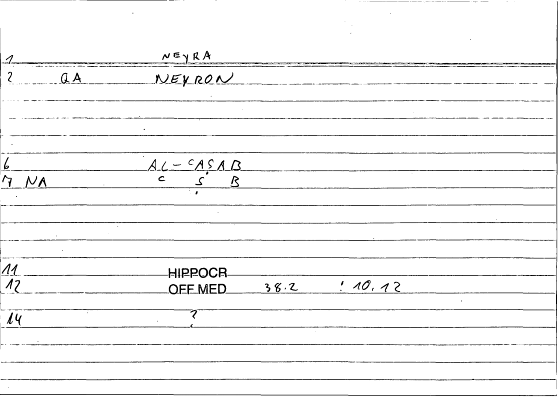 1 NEYRA
2 QA NEYRON
6 AL-ᶜAṢAB
7 NA ᶜ Ṣ B
11 HIPPOCR
12 OFF MED 38.2 ! 10.12
14 ?